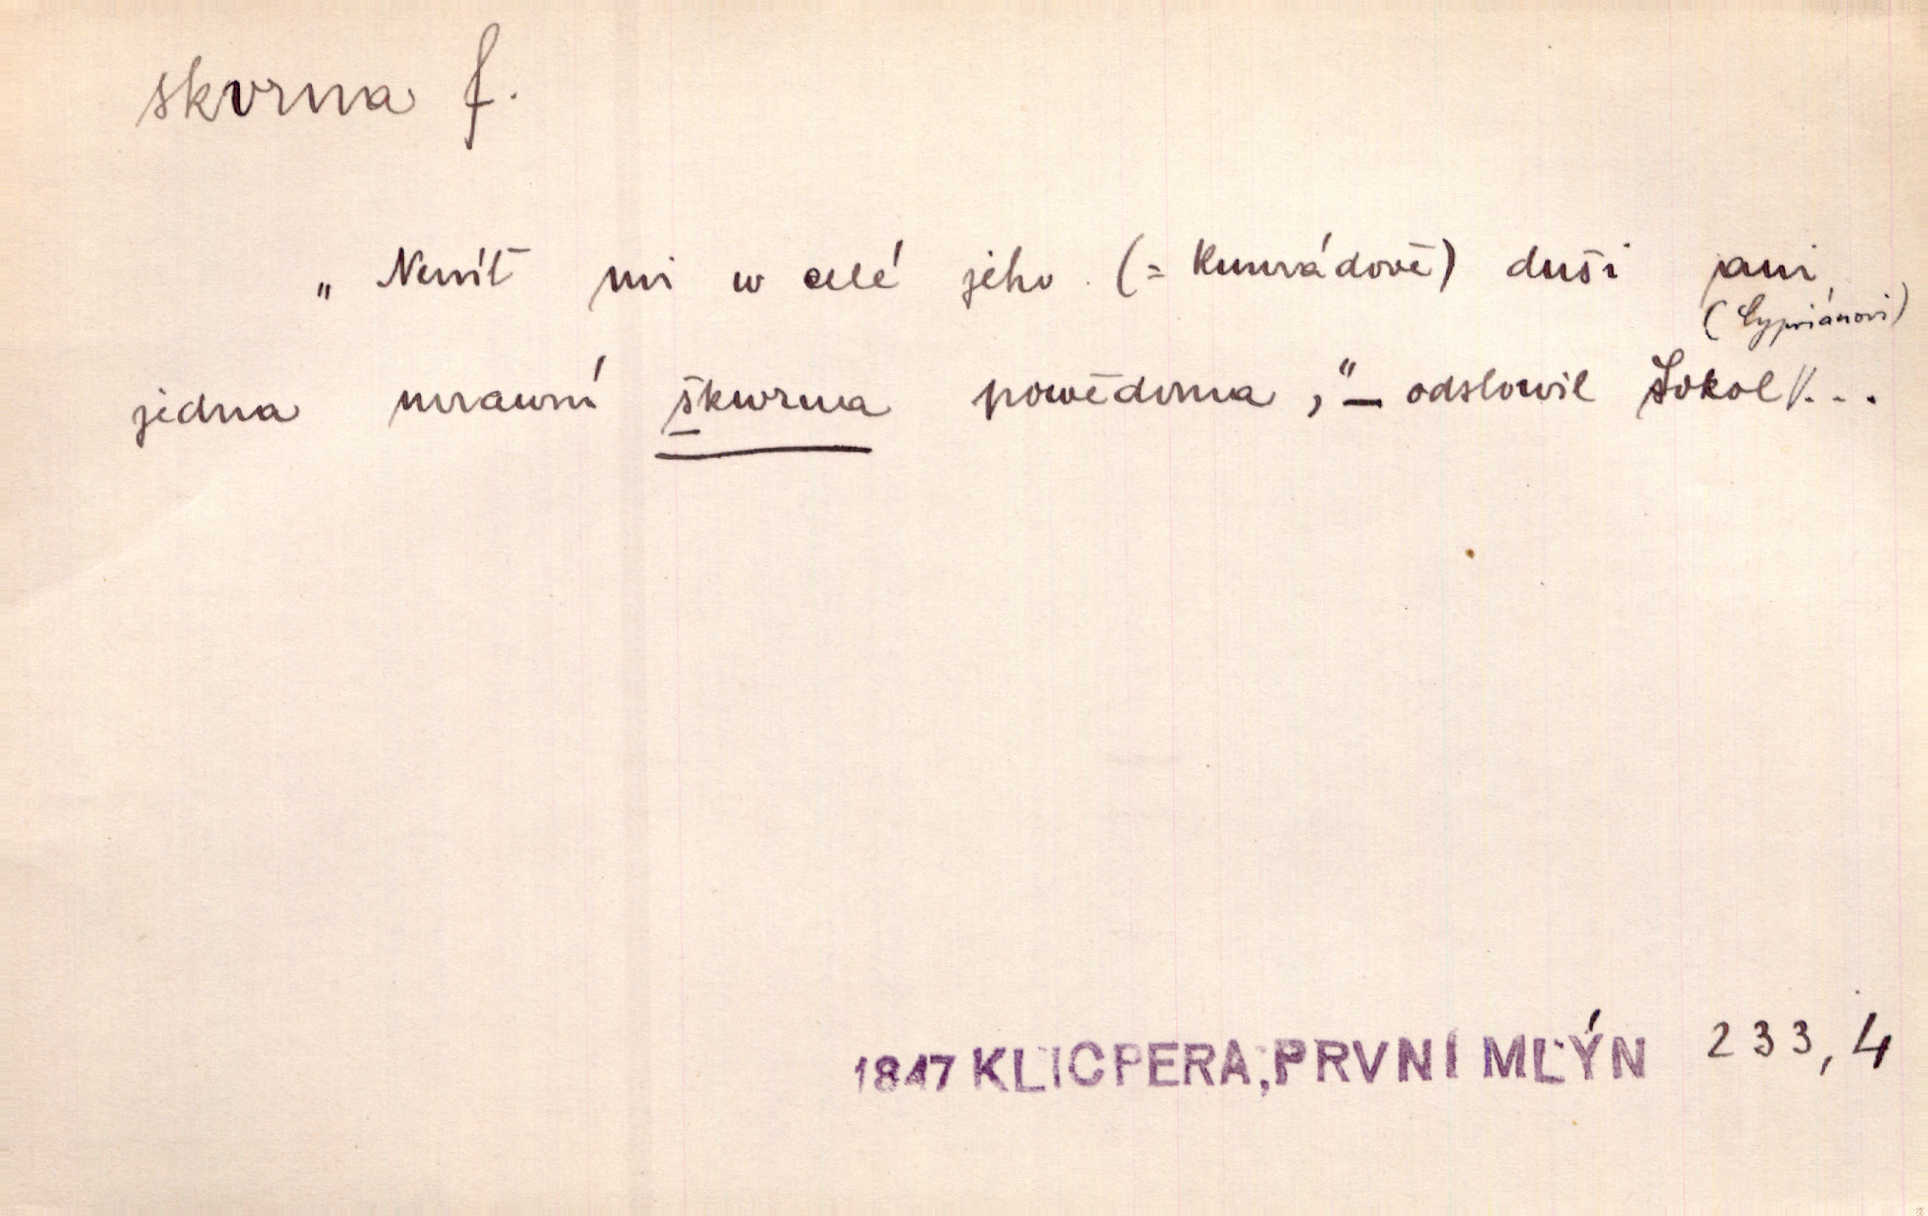 skvrna f.
„Neníť mi w celé jeho (= Kunrádově) duši ani
(Cypriánovi)
jedna mrawní škwrna powědoma,“ – odslowil Sokol / . . .
1847 KLICPERA, PRVNÍ MLÝN 233, 4